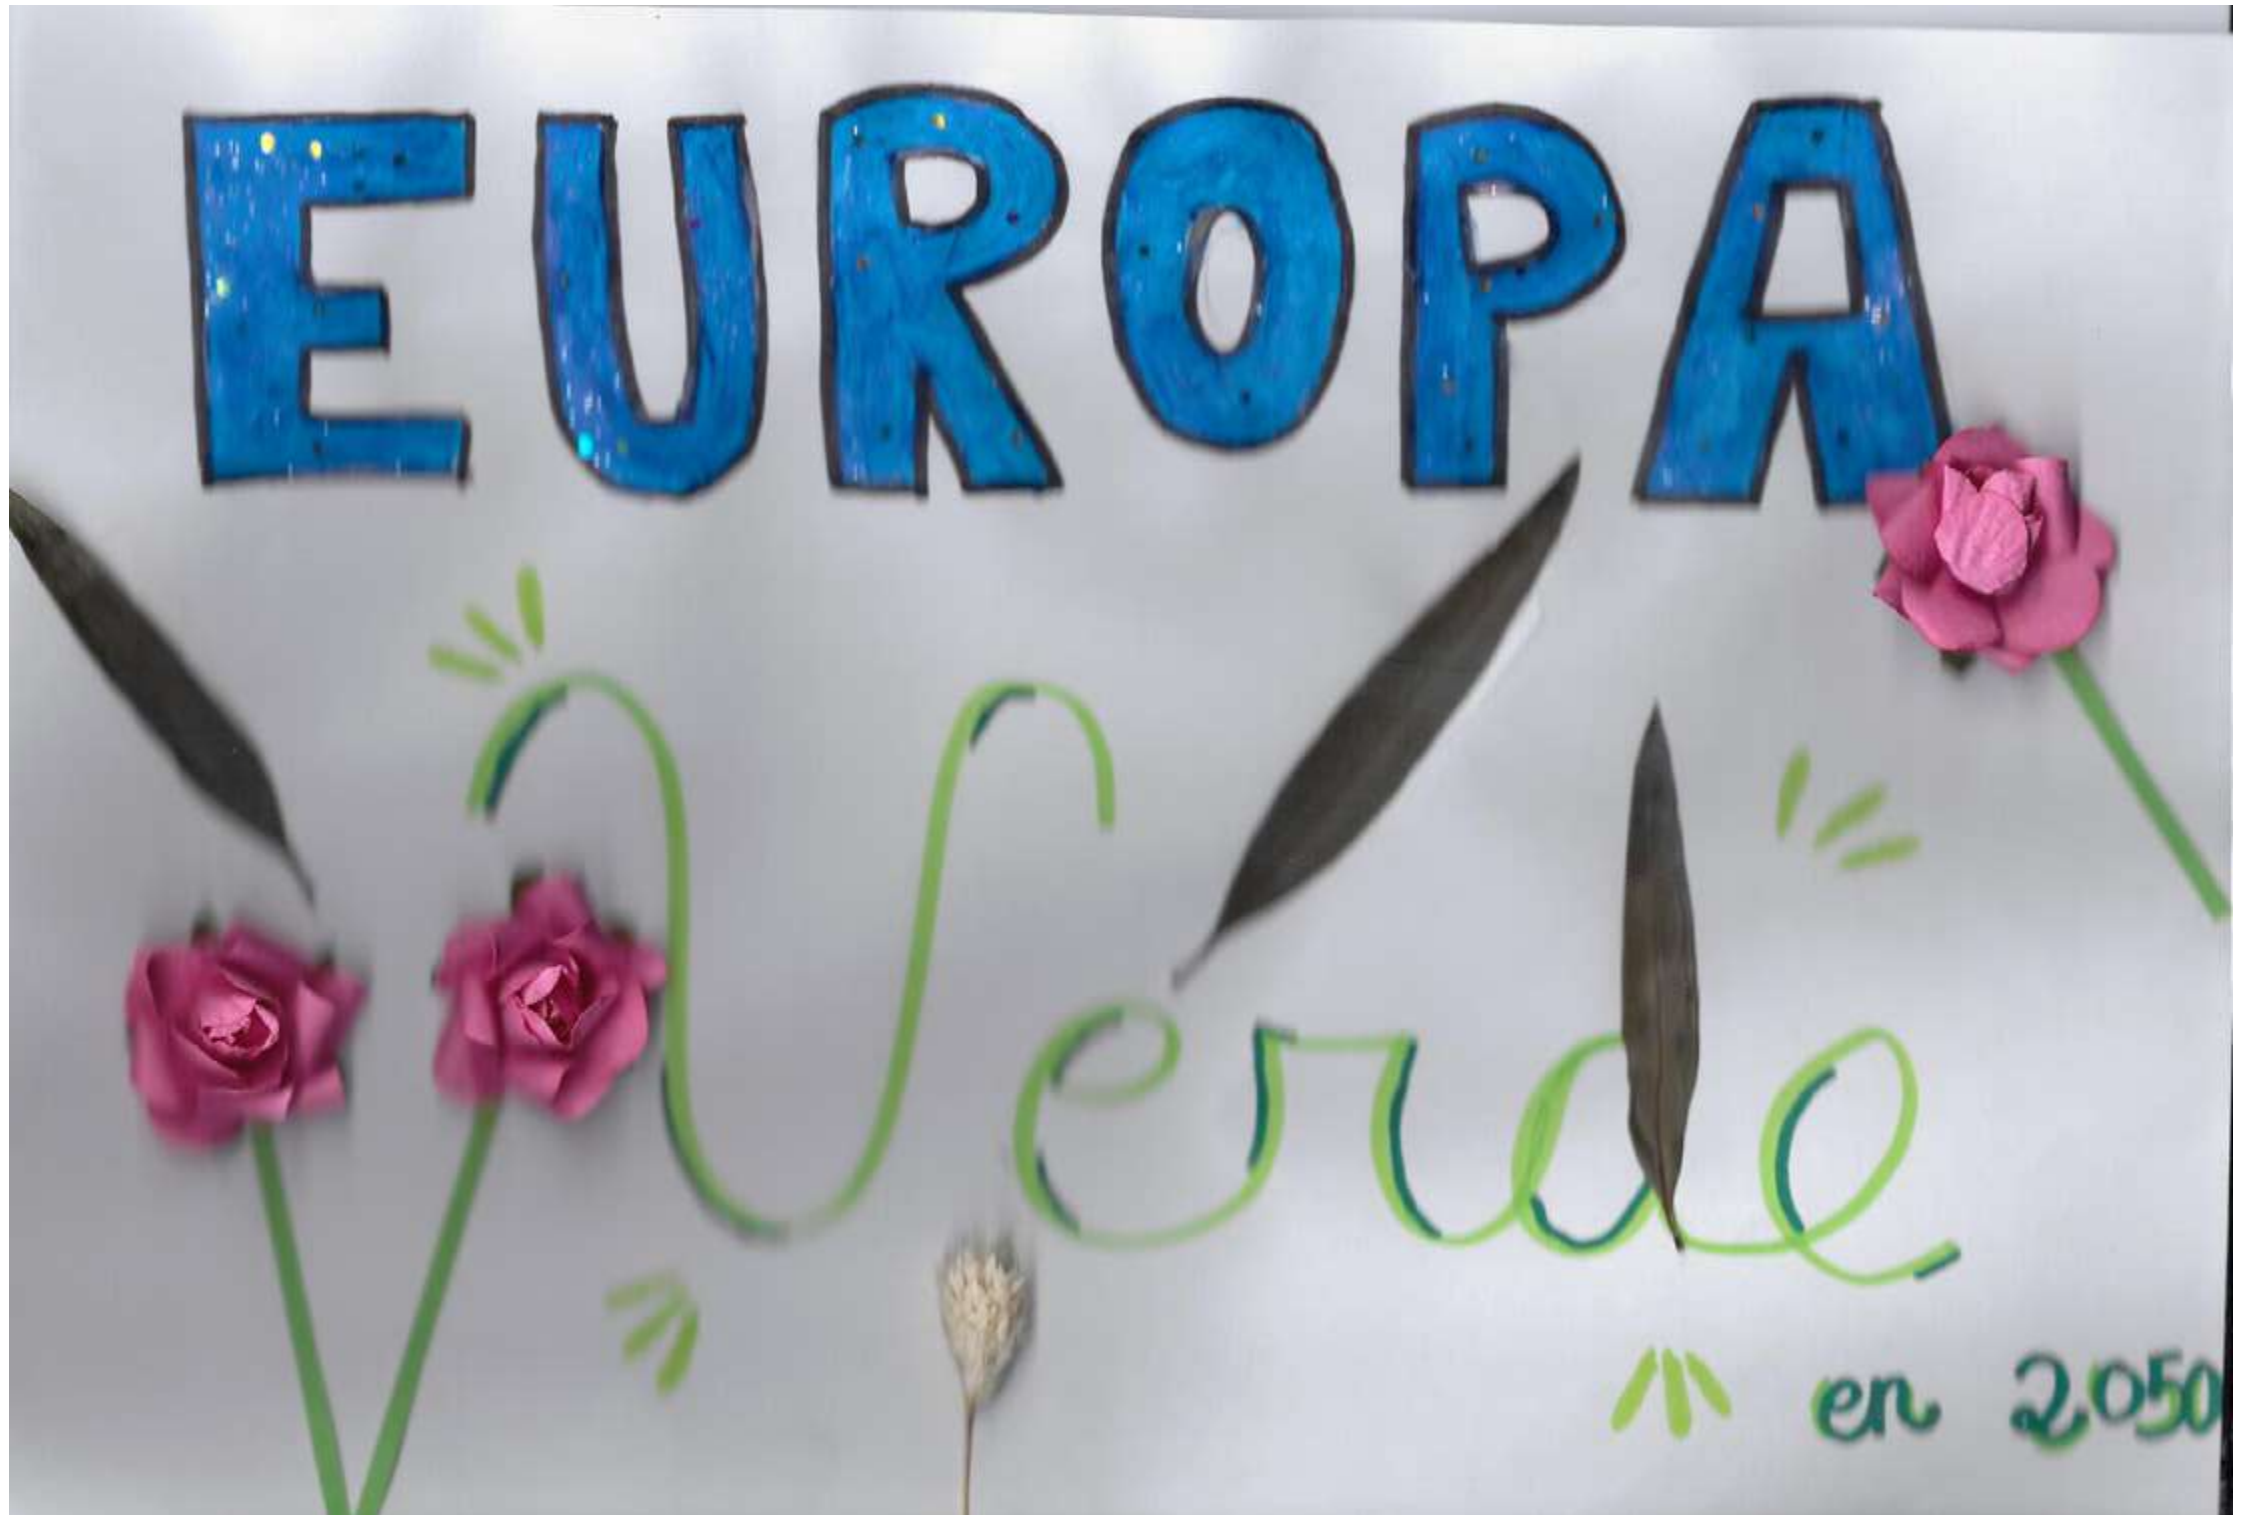 EUROPA
Verde
en 2050